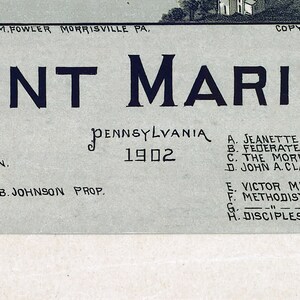 M. FOWLER MORRISVILLE PA.
COPY
NT MARI
PENNSYLVANIA
1902
N.
B. JOHNSON PROP.
A. JEANETTE
B. FEDERATE
C. THE MOR
D. JOHN A. CLA
E. VICTOR M
F. METHODIST
G. —„—
H. DISCIPLES